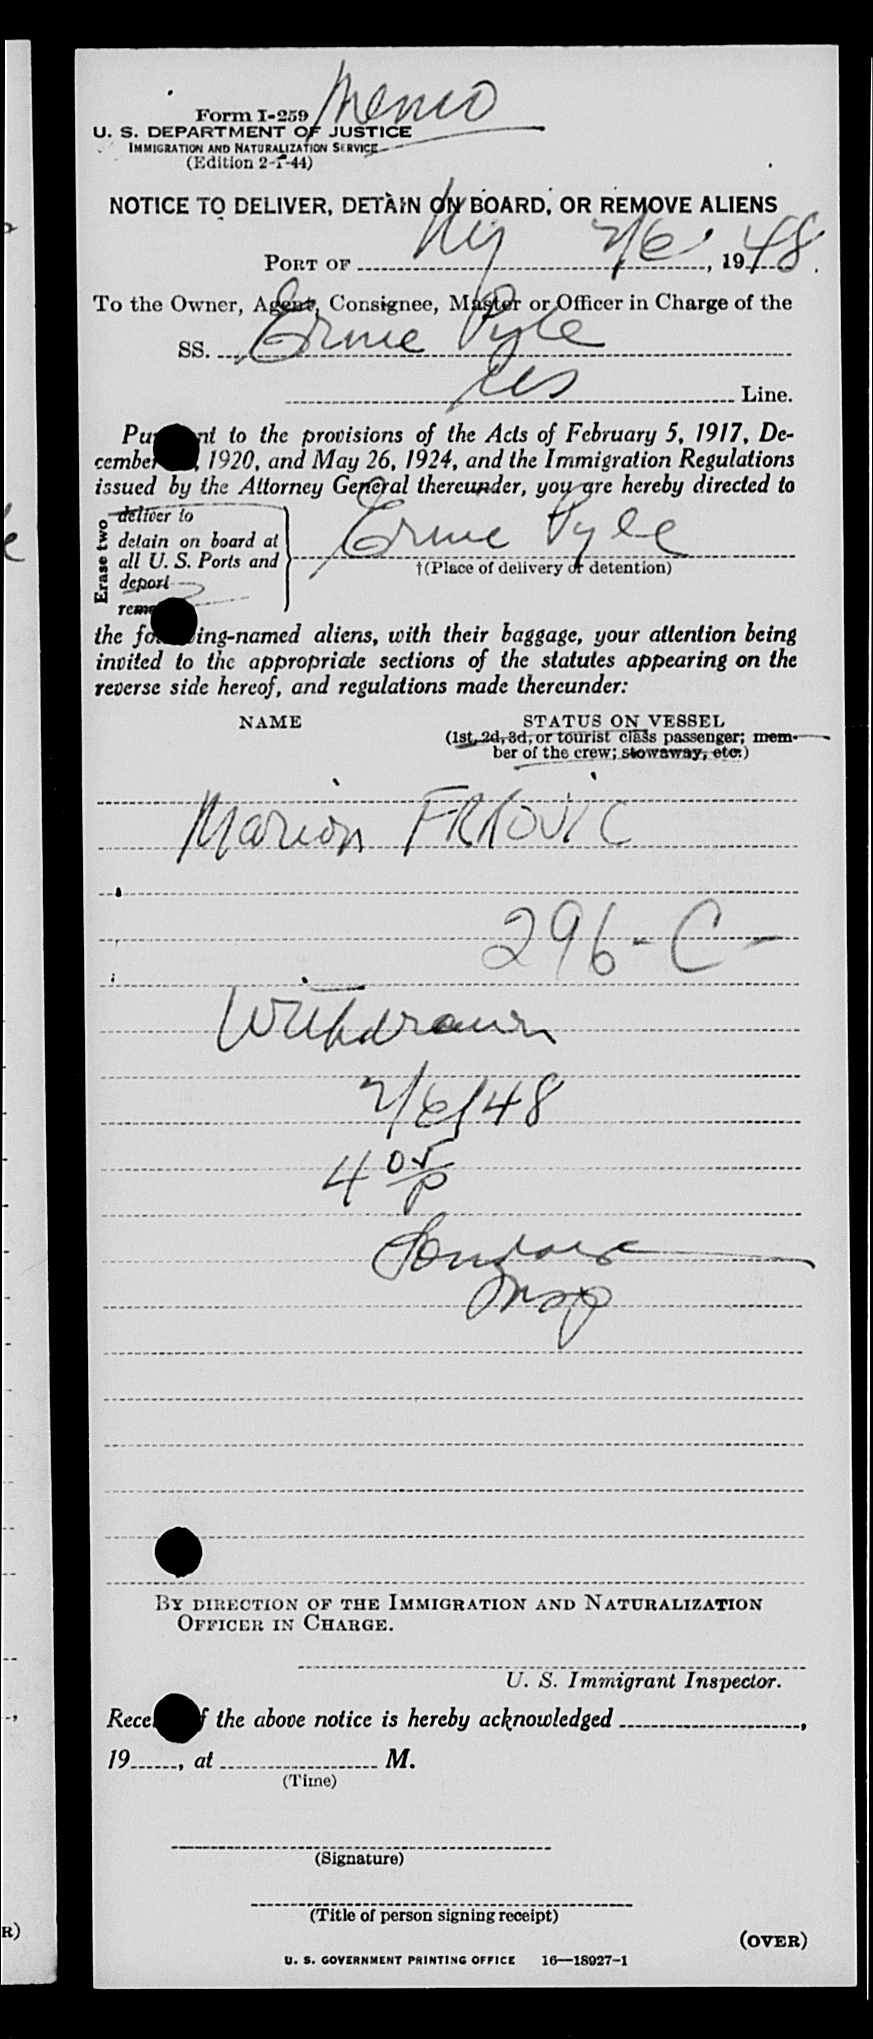 Memo
Form I-259
U. S. DEPARTMENT OF JUSTICE
IMMIGRATION AND NATURALIZATION SERVICE
(Edition 2-1-44)
NOTICE TO DELIVER, DETAIN ON BOARD, OR REMOVE ALIENS
PORT OF NY 2/6, 1948.
To the Owner, Agent, Consignee, Master or Officer in Charge of the
SS. Ernie Pyle
Line.
Pu nt to the provisions of the Acts of February 5, 1917, De-
cember , 1920, and May 26, 1924, and the Immigration Regulations
issued by the Attorney General thereunder, you are hereby directed to
Erase two
deliver to
detain on board at
all U. S. Ports and
deport
remo
Ernie Pyle
†(Place of delivery or detention)
the fo ing-named aliens, with their baggage, your attention being
invited to the appropriate sections of the statutes appearing on the
reverse side hereof, and regulations made thereunder:
NAME STATUS ON VESSEL
(1st, 2d, 3d, or tourist class passenger; mem-
ber of the crew; stowaway, etc.)
Marion FRKOVIC
296-C-
Withdrawn
2/6/48
4 05/P
Insp
BY DIRECTION OF THE IMMIGRATION AND NATURALIZATION
OFFICER IN CHARGE.
U. S. Immigrant Inspector.
Rece f the above notice is hereby acknowledged ,
19 , at M.
(Time)
(Signature)
(Title of person signing receipt)
(OVER)
U. S. GOVERNMENT PRINTING OFFICE 16—18927-1
R)